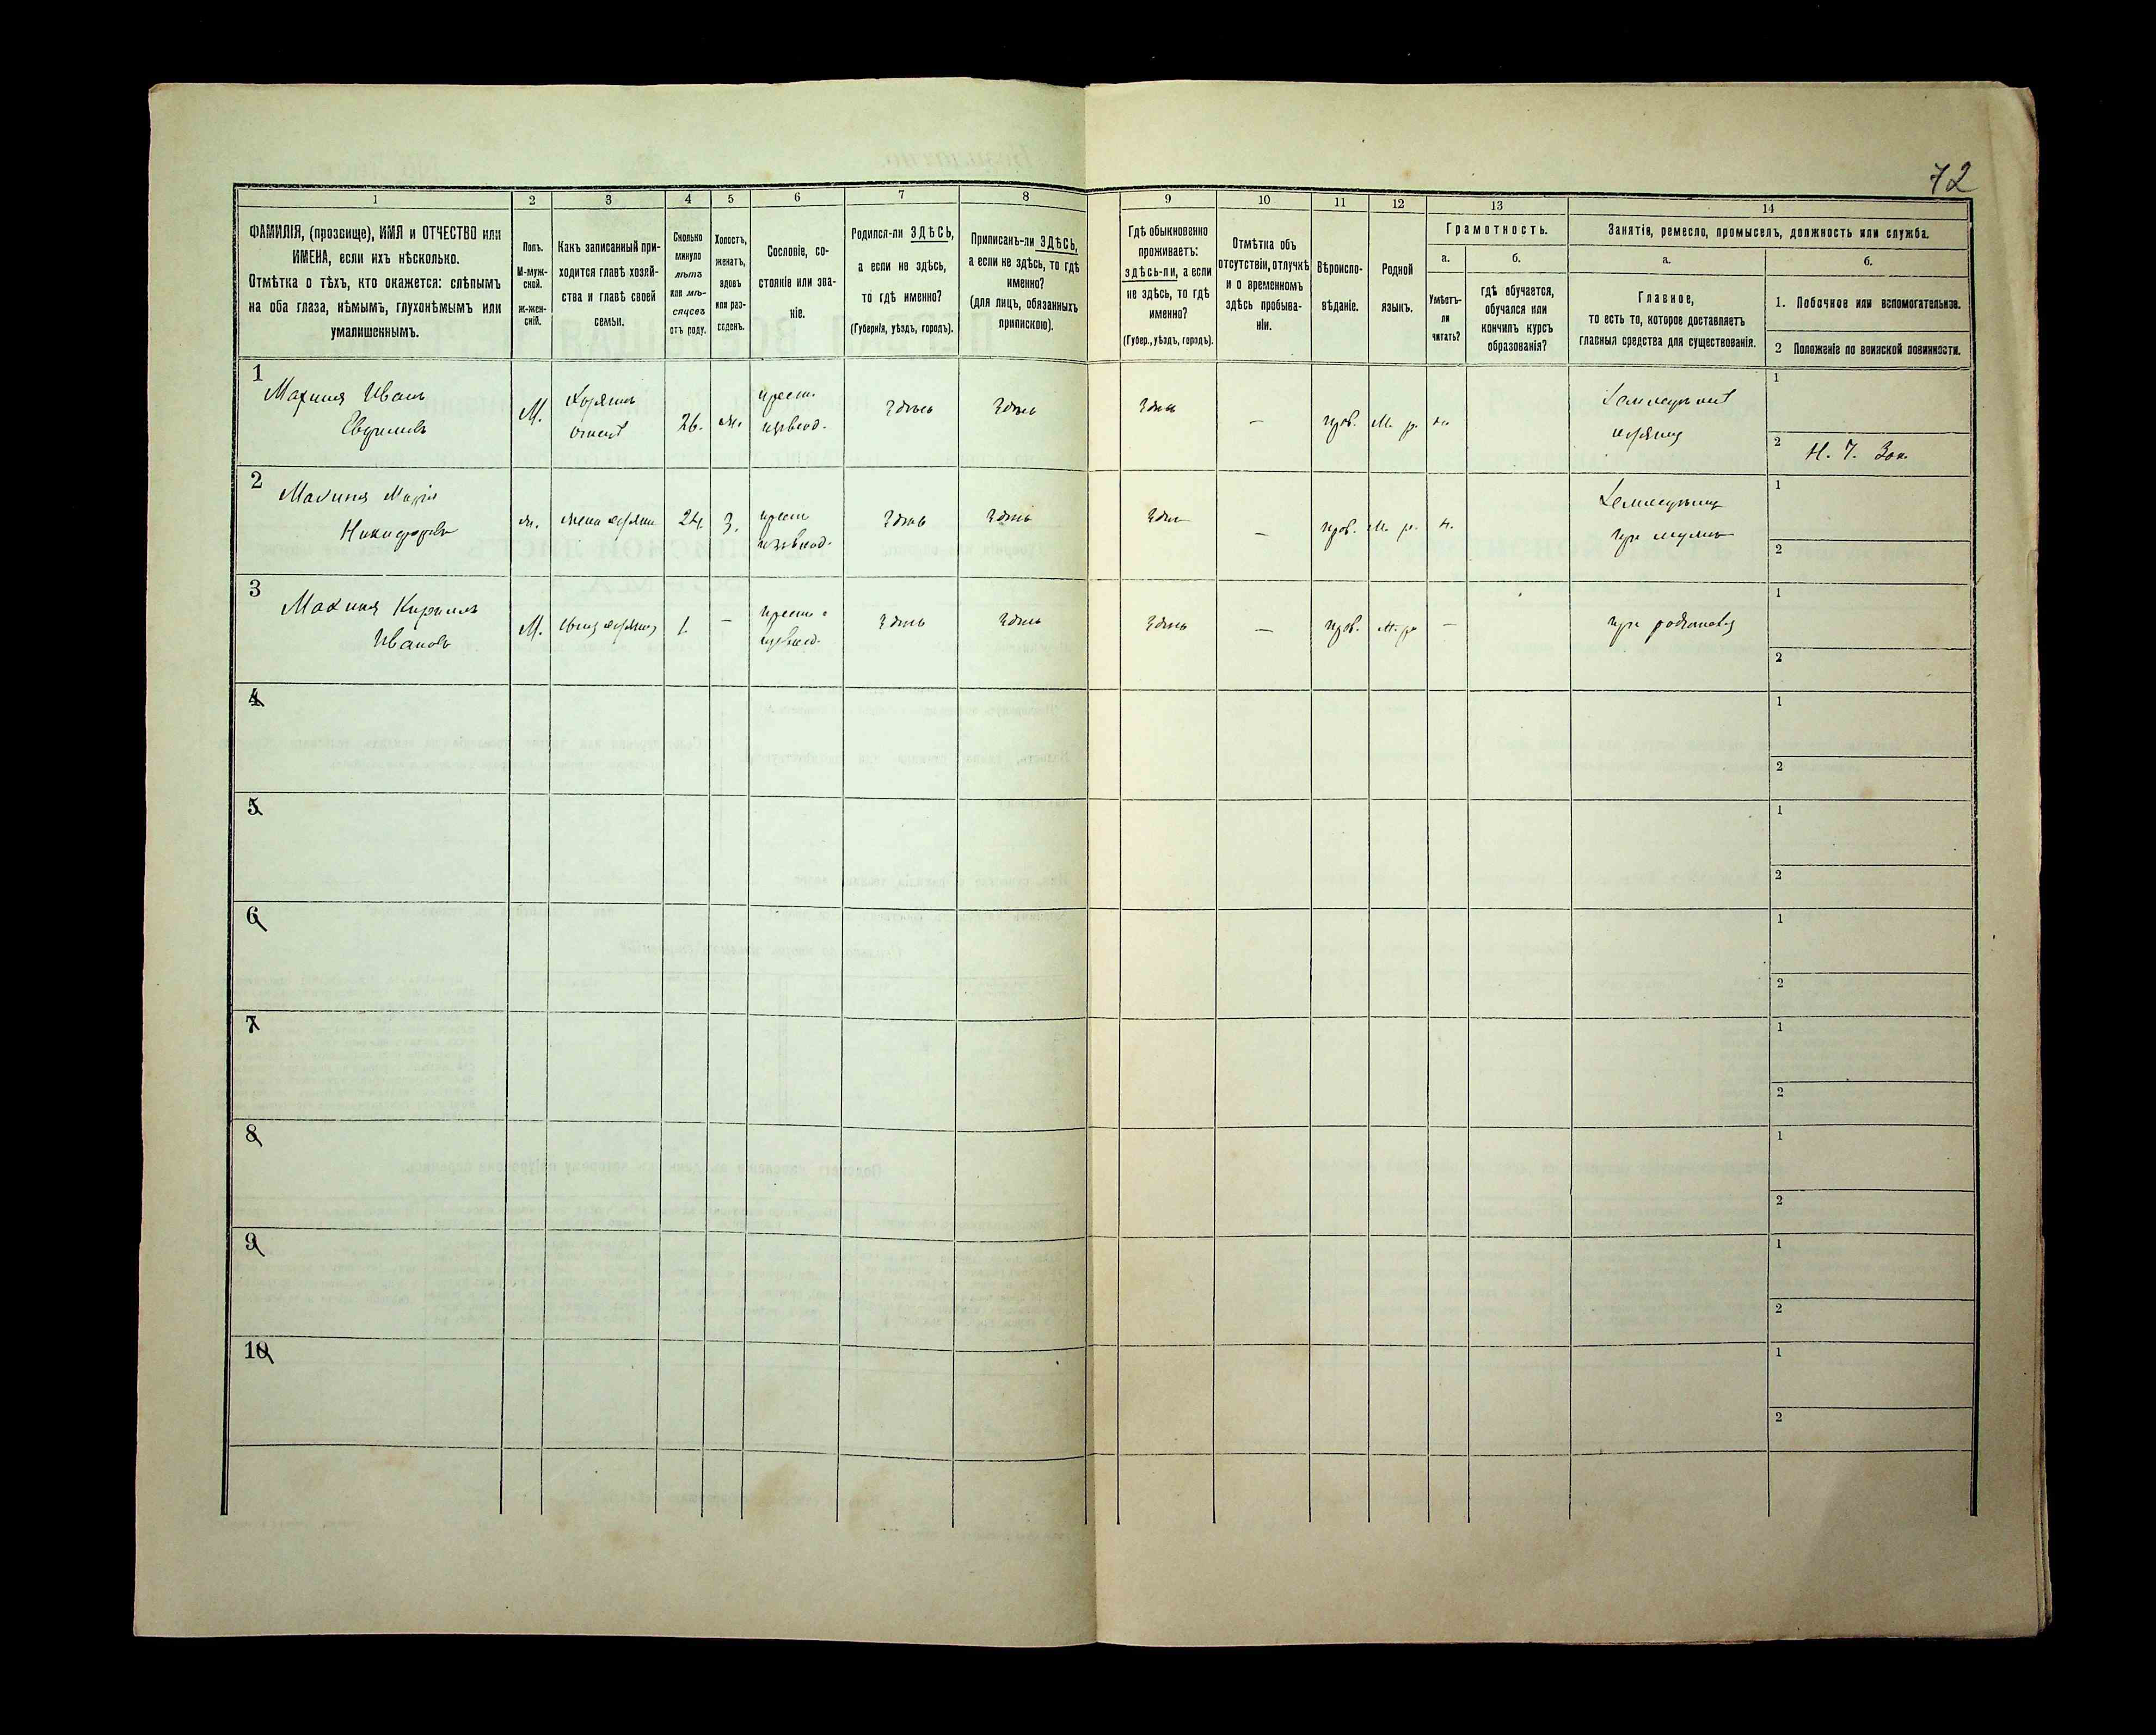 72
1
2
3
4
5
6
7
8
9
10
11
12
13
14
ФАМИЛІЯ, (прозвище), ИМЯ и ОТЧЕСТВО или
ИМЕНА, если ихъ нѣсколько.
Отмѣтка о тѣхъ, кто окажется: слѣпымъ
на оба глаза, нѣмымъ, глухонѣмымъ или
умалишеннымъ.
Полъ.
М-муж-
ской.
ж-жен-
скій.
Какъ записанный при-
ходится главѣ хозяй-
ства и главѣ своей
семьи.
Сколько
минуло
лѣтъ
или мѣ-
сяцевъ
отъ роду.
Холостъ,
женатъ,
вдовъ
или раз-
веденъ.
Сословіе, со-
стояніе или зва-
ніе.
Родился-ли ЗДѢСЬ,
а если не здѣсь,
то гдѣ именно?
(Губернія, уѣздъ, городъ).
Приписанъ-ли ЗДѢСЬ,
а если не здѣсь, то гдѣ
именно?
(для лицъ, обязанныхъ
припискою).
Гдѣ обыкновенно
проживаетъ:
здѣсь-ли, а если
не здѣсь, то гдѣ
именно?
(Губер., уѣздъ, городъ).
Отмѣтка объ
отсутствіи, отлучкѣ
и о временномъ
здѣсь пребыва-
ніи.
Вѣроиспо-
вѣданіе.
Родной
языкъ.
Грамотность.
а.
Умѣетъ-
ли
читать?
б.
гдѣ обучается,
обучался или
кончилъ курсъ
образованія?
Занятіе, ремесло, промыселъ, должность или служба.
а.
Главное,
то есть то, которое доставляетъ
главныя средства для существованія.
б.
1. Побочное или вспомогательное.
2 Положеніе по воинской повинности.
1
Махиня Иванъ
М.
Хозяинъ
26.
ж.
Здѣсь
Здѣсь
Здѣсь
—
прав.
М. р.
н.
1
2 Н. 7. Зап.
2
Махиня Марія
Никифорова
ж.
жена хозяина
24.
З.
Здѣсь
Здѣсь
Здѣсь
—
прав.
М. р.
н.
при мужѣ
1
2
3
Махиня Кирилъ
Ивановъ
М.
сынъ хозяина
1.
—
Здѣсь
Здѣсь
Здѣсь
—
прав.
М. р.
—
при родителяхъ
1
2
4
1
2
5
1
2
6
1
2
7
1
2
8
1
2
9
1
2
10
1
2